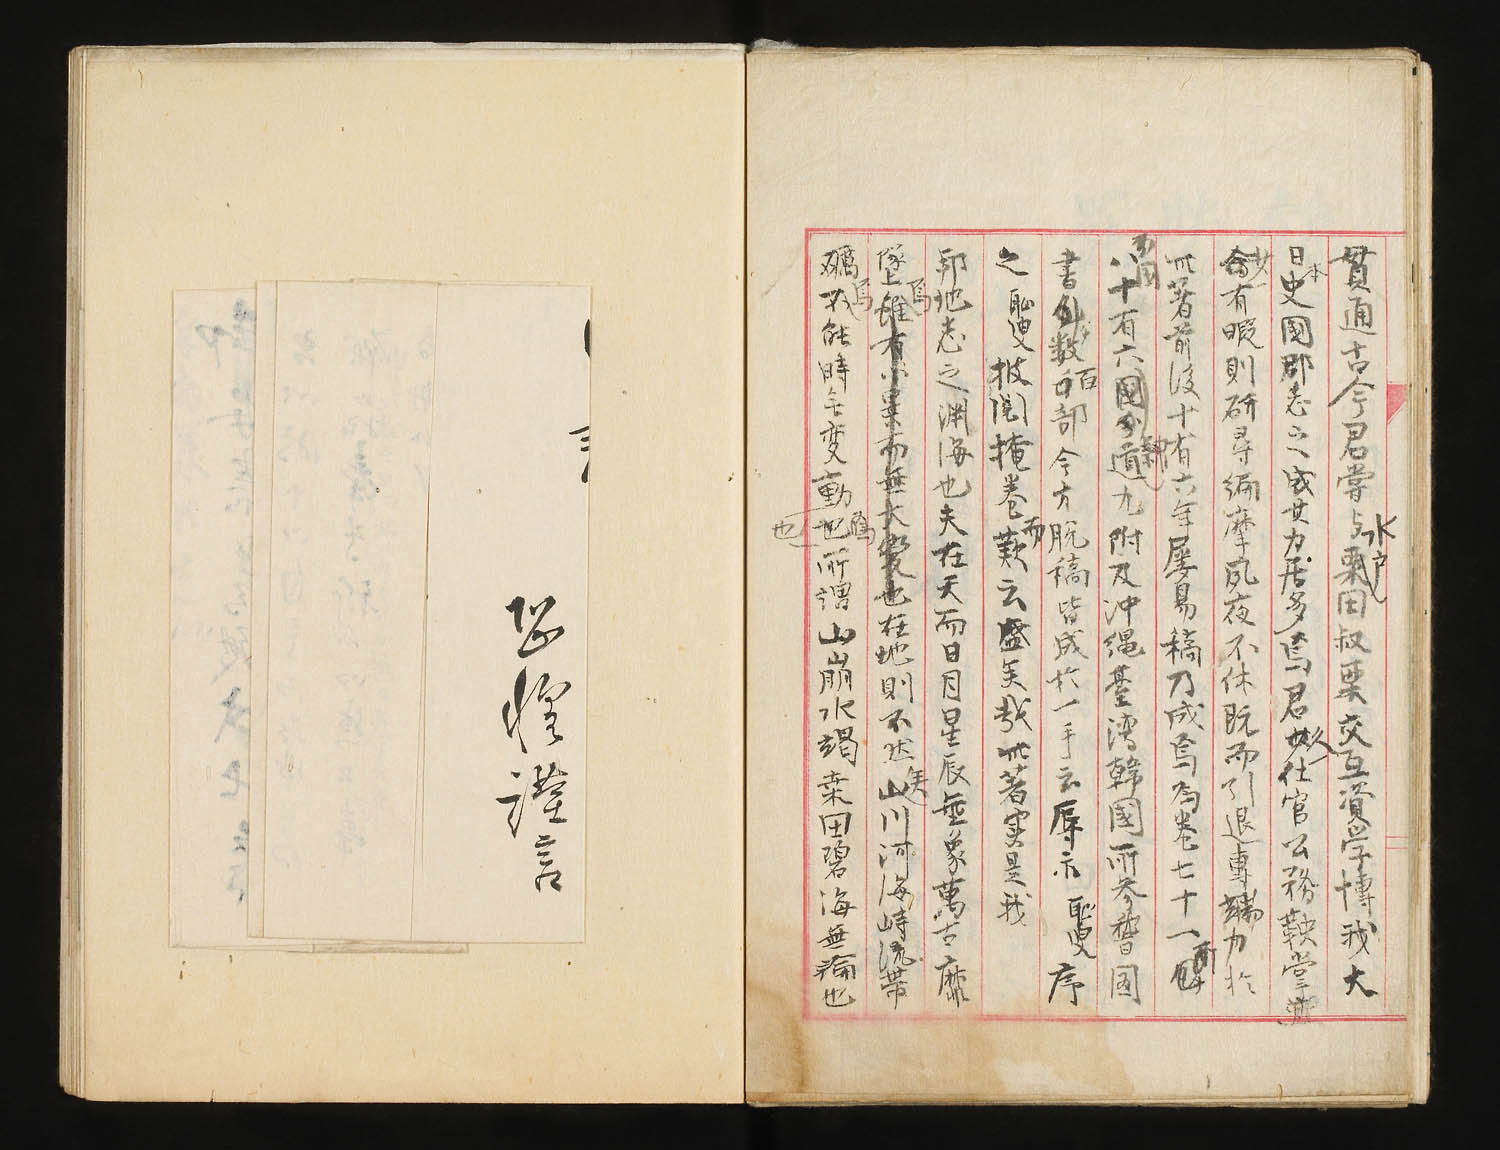 貫通古今君嘗与水戸栗田叔栗交互資学博我大
日本史國郡志之成其力居多焉君仕官公務鞅掌
有暇則研尋編摩夙夜不休既而引退専力於
此著前後十有六年屡易稿乃成焉為巻七十一
八十有六國道九附及沖縄臺湾韓國所参稽圖
書数百部今方脱稿皆成於一手云辱示恥叟序
之恥叟披閲掩巻而歎云盛矣哉此著実是我
邦地志之渊海也夫在天而日月星辰垂象萬古靡
墜雖有小異而無大變也在地則不然矣山川河海峙流帯
礪不能時無變動也所謂山崩水竭桑田碧海無淪也
恐惶謹言